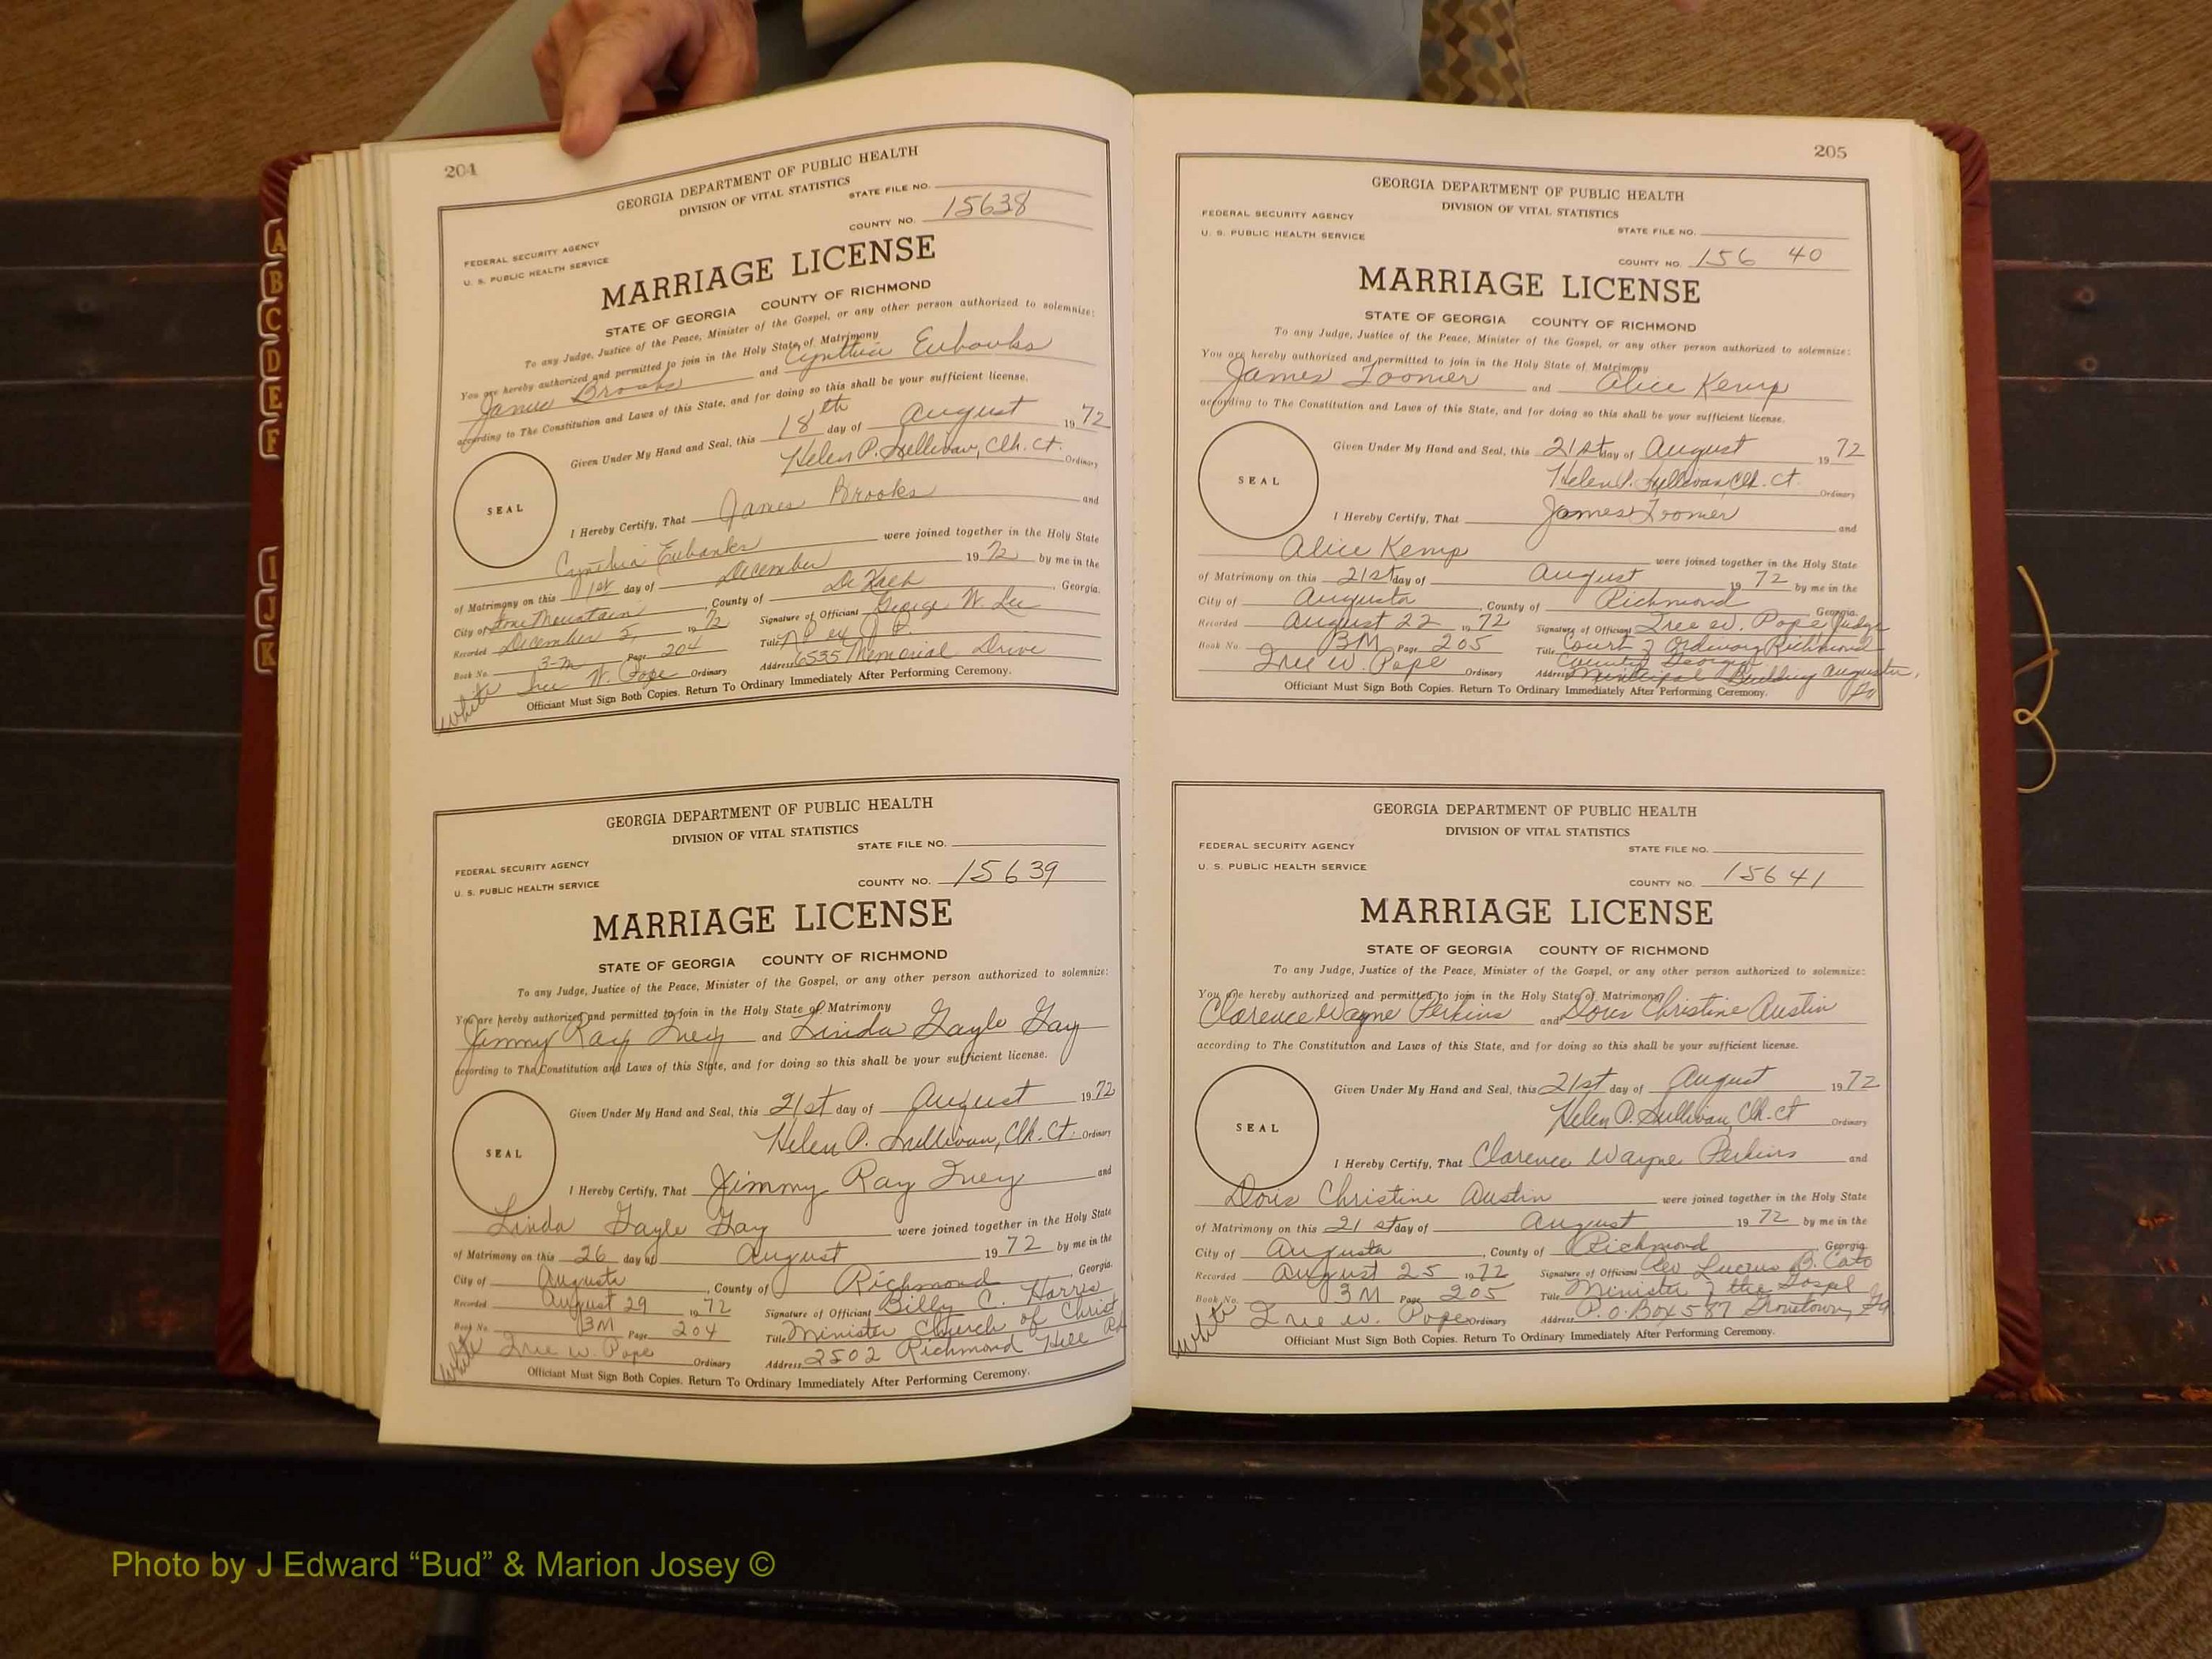 204
GEORGIA DEPARTMENT OF PUBLIC HEALTH
DIVISION OF VITAL STATISTICS
STATE FILE NO.
FEDERAL SECURITY AGENCY
U. S. PUBLIC HEALTH SERVICE
COUNTY NO. 15638
MARRIAGE LICENSE
STATE OF GEORGIA COUNTY OF RICHMOND
To any Judge, Justice of the Peace, Minister of the Gospel, or any other person authorized to solemnize:
You are hereby authorized and permitted to join in the Holy State of Matrimony
James Brooks and Cynthia Eubanks
according to The Constitution and Laws of this State, and for doing so this shall be your sufficient license.
Given Under My Hand and Seal, this 18th day of August 1972
Helen P. Sullivan, Clk. Ct. Ordinary
SEAL
I Hereby Certify, That James Brooks and
Cynthia Eubanks were joined together in the Holy State
of Matrimony on this 1st day of December 1972 by me in the
City of Stone Mountain, County of De Kalb, Georgia.
Recorded December 5, 1972 Signature of Officiant George W. Lee
Book No. 3-M Page 204 Title N P ex J. P.
White Ordinary Address 6535 Memorial Drive
Officiant Must Sign Both Copies. Return To Ordinary Immediately After Performing Ceremony.
GEORGIA DEPARTMENT OF PUBLIC HEALTH
DIVISION OF VITAL STATISTICS
STATE FILE NO.
FEDERAL SECURITY AGENCY
U. S. PUBLIC HEALTH SERVICE
COUNTY NO. 15639
MARRIAGE LICENSE
STATE OF GEORGIA COUNTY OF RICHMOND
To any Judge, Justice of the Peace, Minister of the Gospel, or any other person authorized to solemnize:
You are hereby authorized and permitted to join in the Holy State of Matrimony
Jimmy Ray Ivey and Linda Gayle Gay
according to The Constitution and Laws of this State, and for doing so this shall be your sufficient license.
Given Under My Hand and Seal, this 21st day of August 1972
Helen P. Sullivan, Clk. Ct. Ordinary
SEAL
I Hereby Certify, That Jimmy Ray Ivey and
Linda Gayle Gay were joined together in the Holy State
of Matrimony on this 26 day of August 1972 by me in the
City of Augusta, County of Richmond, Georgia.
Recorded August 29 1972 Signature of Officiant Billy C. Harris
Book No. 3M Page 204 Title Minister Church of Christ
White W. Pope Ordinary Address 2502 Richmond Hill Rd
Officiant Must Sign Both Copies. Return To Ordinary Immediately After Performing Ceremony.
205
GEORGIA DEPARTMENT OF PUBLIC HEALTH
DIVISION OF VITAL STATISTICS
FEDERAL SECURITY AGENCY
U. S. PUBLIC HEALTH SERVICE
STATE FILE NO.
COUNTY NO. 156 40
MARRIAGE LICENSE
STATE OF GEORGIA COUNTY OF RICHMOND
To any Judge, Justice of the Peace, Minister of the Gospel, or any other person authorized to solemnize:
You are hereby authorized and permitted to join in the Holy State of Matrimony
James Toomer and Alice Kemp
according to The Constitution and Laws of this State, and for doing so this shall be your sufficient license.
Given Under My Hand and Seal, this 21st day of August 1972
Helen P. Sullivan, Clk. Ct. Ordinary
SEAL
I Hereby Certify, That James Toomer and
Alice Kemp were joined together in the Holy State
of Matrimony on this 21st day of August 1972 by me in the
City of Augusta, County of Richmond, Georgia.
Recorded August 22 1972 Signature of Officiant W. Pope Judge
Book No. 3M Page 205 Title Court of Ordinary Richmond
County Georgia
W. Pope Ordinary Address Municipal Building Augusta, Ga
Officiant Must Sign Both Copies. Return To Ordinary Immediately After Performing Ceremony.
GEORGIA DEPARTMENT OF PUBLIC HEALTH
DIVISION OF VITAL STATISTICS
FEDERAL SECURITY AGENCY
STATE FILE NO.
U. S. PUBLIC HEALTH SERVICE
COUNTY NO. 15641
MARRIAGE LICENSE
STATE OF GEORGIA COUNTY OF RICHMOND
To any Judge, Justice of the Peace, Minister of the Gospel, or any other person authorized to solemnize:
You are hereby authorized and permitted to join in the Holy State of Matrimony
Clarence Wayne Perkins and Doris Christine Austin
according to The Constitution and Laws of this State, and for doing so this shall be your sufficient license.
Given Under My Hand and Seal, this 21st day of August 1972
Helen P. Sullivan, Clk. Ct Ordinary
SEAL
I Hereby Certify, That Clarence Wayne Perkins and
Doris Christine Austin were joined together in the Holy State
of Matrimony on this 21st day of August 1972 by me in the
City of Augusta, County of Richmond Georgia
Recorded August 25 1972 Signature of Officiant Rev Lucius B. Cato
Book No. 3M Page 205 Title Minister of the Gospel
White W. Pope Ordinary Address P.O. Box 587 Grovetown, Ga
Officiant Must Sign Both Copies. Return To Ordinary Immediately After Performing Ceremony.
A
B
C
D
E
F
I
J
K
Photo by J Edward “Bud” & Marion Josey ©